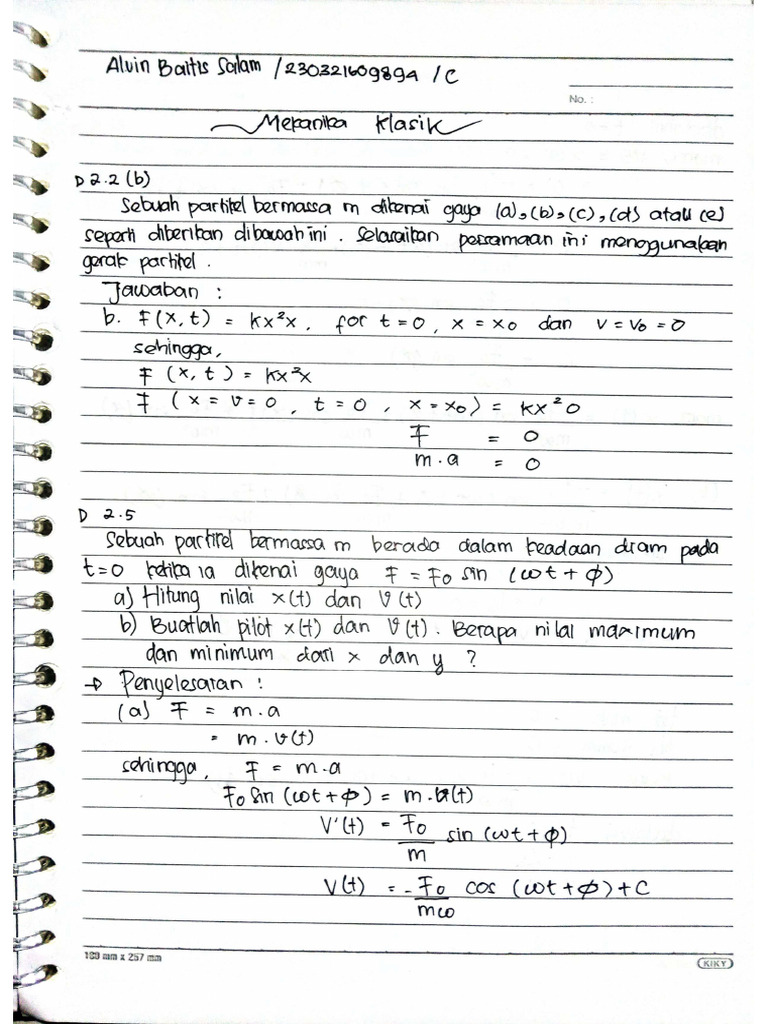 Alvin Baitis Salam / 230321609894 / C
No. :
Mekanika Klasik
D 2.2 (b)
Sebuah partikel bermassa m dikenai gaya (a), (b), (c), (d) atau (e)
seperti diberikan dibawah ini. Selasaikan persamaan ini menggunakan
gerak partikel.
Jawaban :
b. F(x, t) = kx²x, for t = 0, x = x₀ dan v = v₀ = 0
sehingga,
F (x, t) = kx²x
F (x = v = 0, t = 0, x = x₀) = kx² 0
F = 0
m . a = 0
D 2.5
Sebuah partikel bermassa m berada dalam keadaan diam pada
t=0 ketika ia dikenai gaya F = F₀ sin (ωt + ϕ)
a) Hitung nilai x(t) dan v(t)
b) Buatlah pilot x(t) dan v(t). Berapa nilai maximum
dan minimum dari x dan y ?
→ Penyelesaian :
(a) F = m . a
= m . v(t)
sehingga, F = m . a
F₀ sin (ωt + ϕ) = m . v(t)
V'(t) = F₀/m sin (ωt + ϕ)
V(t) = - F₀/mω cos (ωt + ϕ) + C
180 mm x 257 mm
KIKY